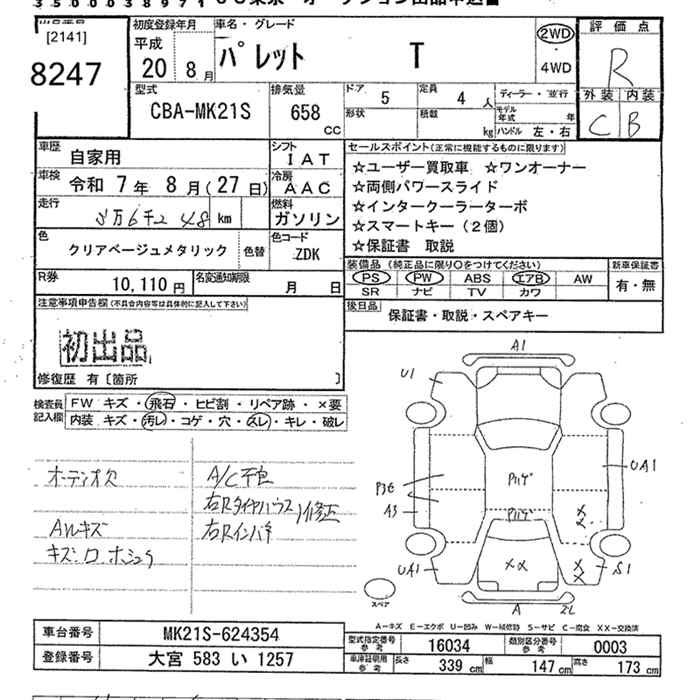 3500038971
[2141]
8247
初度登録年月
平成
20 8月
車名・グレード
パレット T
2WD
4WD
評価点
R
外装 内装
C B
型式
CBA-MK21S
排気量
658
CC
ドア
5
定員
4 人
形状
積載
kg
ディーラー・並行
モデル年式 年
ハンドル 左・右
車歴
自家用
シフト
IAT
車検
令和 7年 8月(27日)
冷房
AAC
走行
km
燃料
ガソリン
色
クリアベージュメタリック
色替
色コード
ZDK
R券
10,110円
名変通知期限
月 日
セールスポイント(正常に機能するものに限ります)
☆ユーザー買取車 ☆ワンオーナー
☆両側パワースライド
☆インタークーラーターボ
☆スマートキー(2個)
☆保証書 取説
装備品(純正品に限り○をつけてください)
PS PW ABS エアB AW
SR ナビ TV カワ
新車保証書
有・無
後日品
保証書・取説・スペアキー
注意事項申告欄(不具合内容等は具体的に記入して下さい)
初出品
修復歴 有〔箇所 〕
検査員記入欄
FW キズ・飛石・ヒビ割・リペア跡・×要
内装 キズ・汚レ・コゲ・穴・スレ・キレ・破レ
オーディオ欠
AWキズ
A/C不良
右Rタイヤハウス
右Rインパネ
修正
A1
U1
UA1
A3
UA1
S1
A
スペア
A－キズ E－エクボ U－凹み W－補修跡 S－サビ C－腐食 XX－交換済
車台番号
MK21S-624354
登録番号
大宮 583 い 1257
型式指定番号
参考
16034
類別区分番号
参考
0003
車庫証明用
参考
長さ
339 cm
幅
147 cm
高さ
173 cm